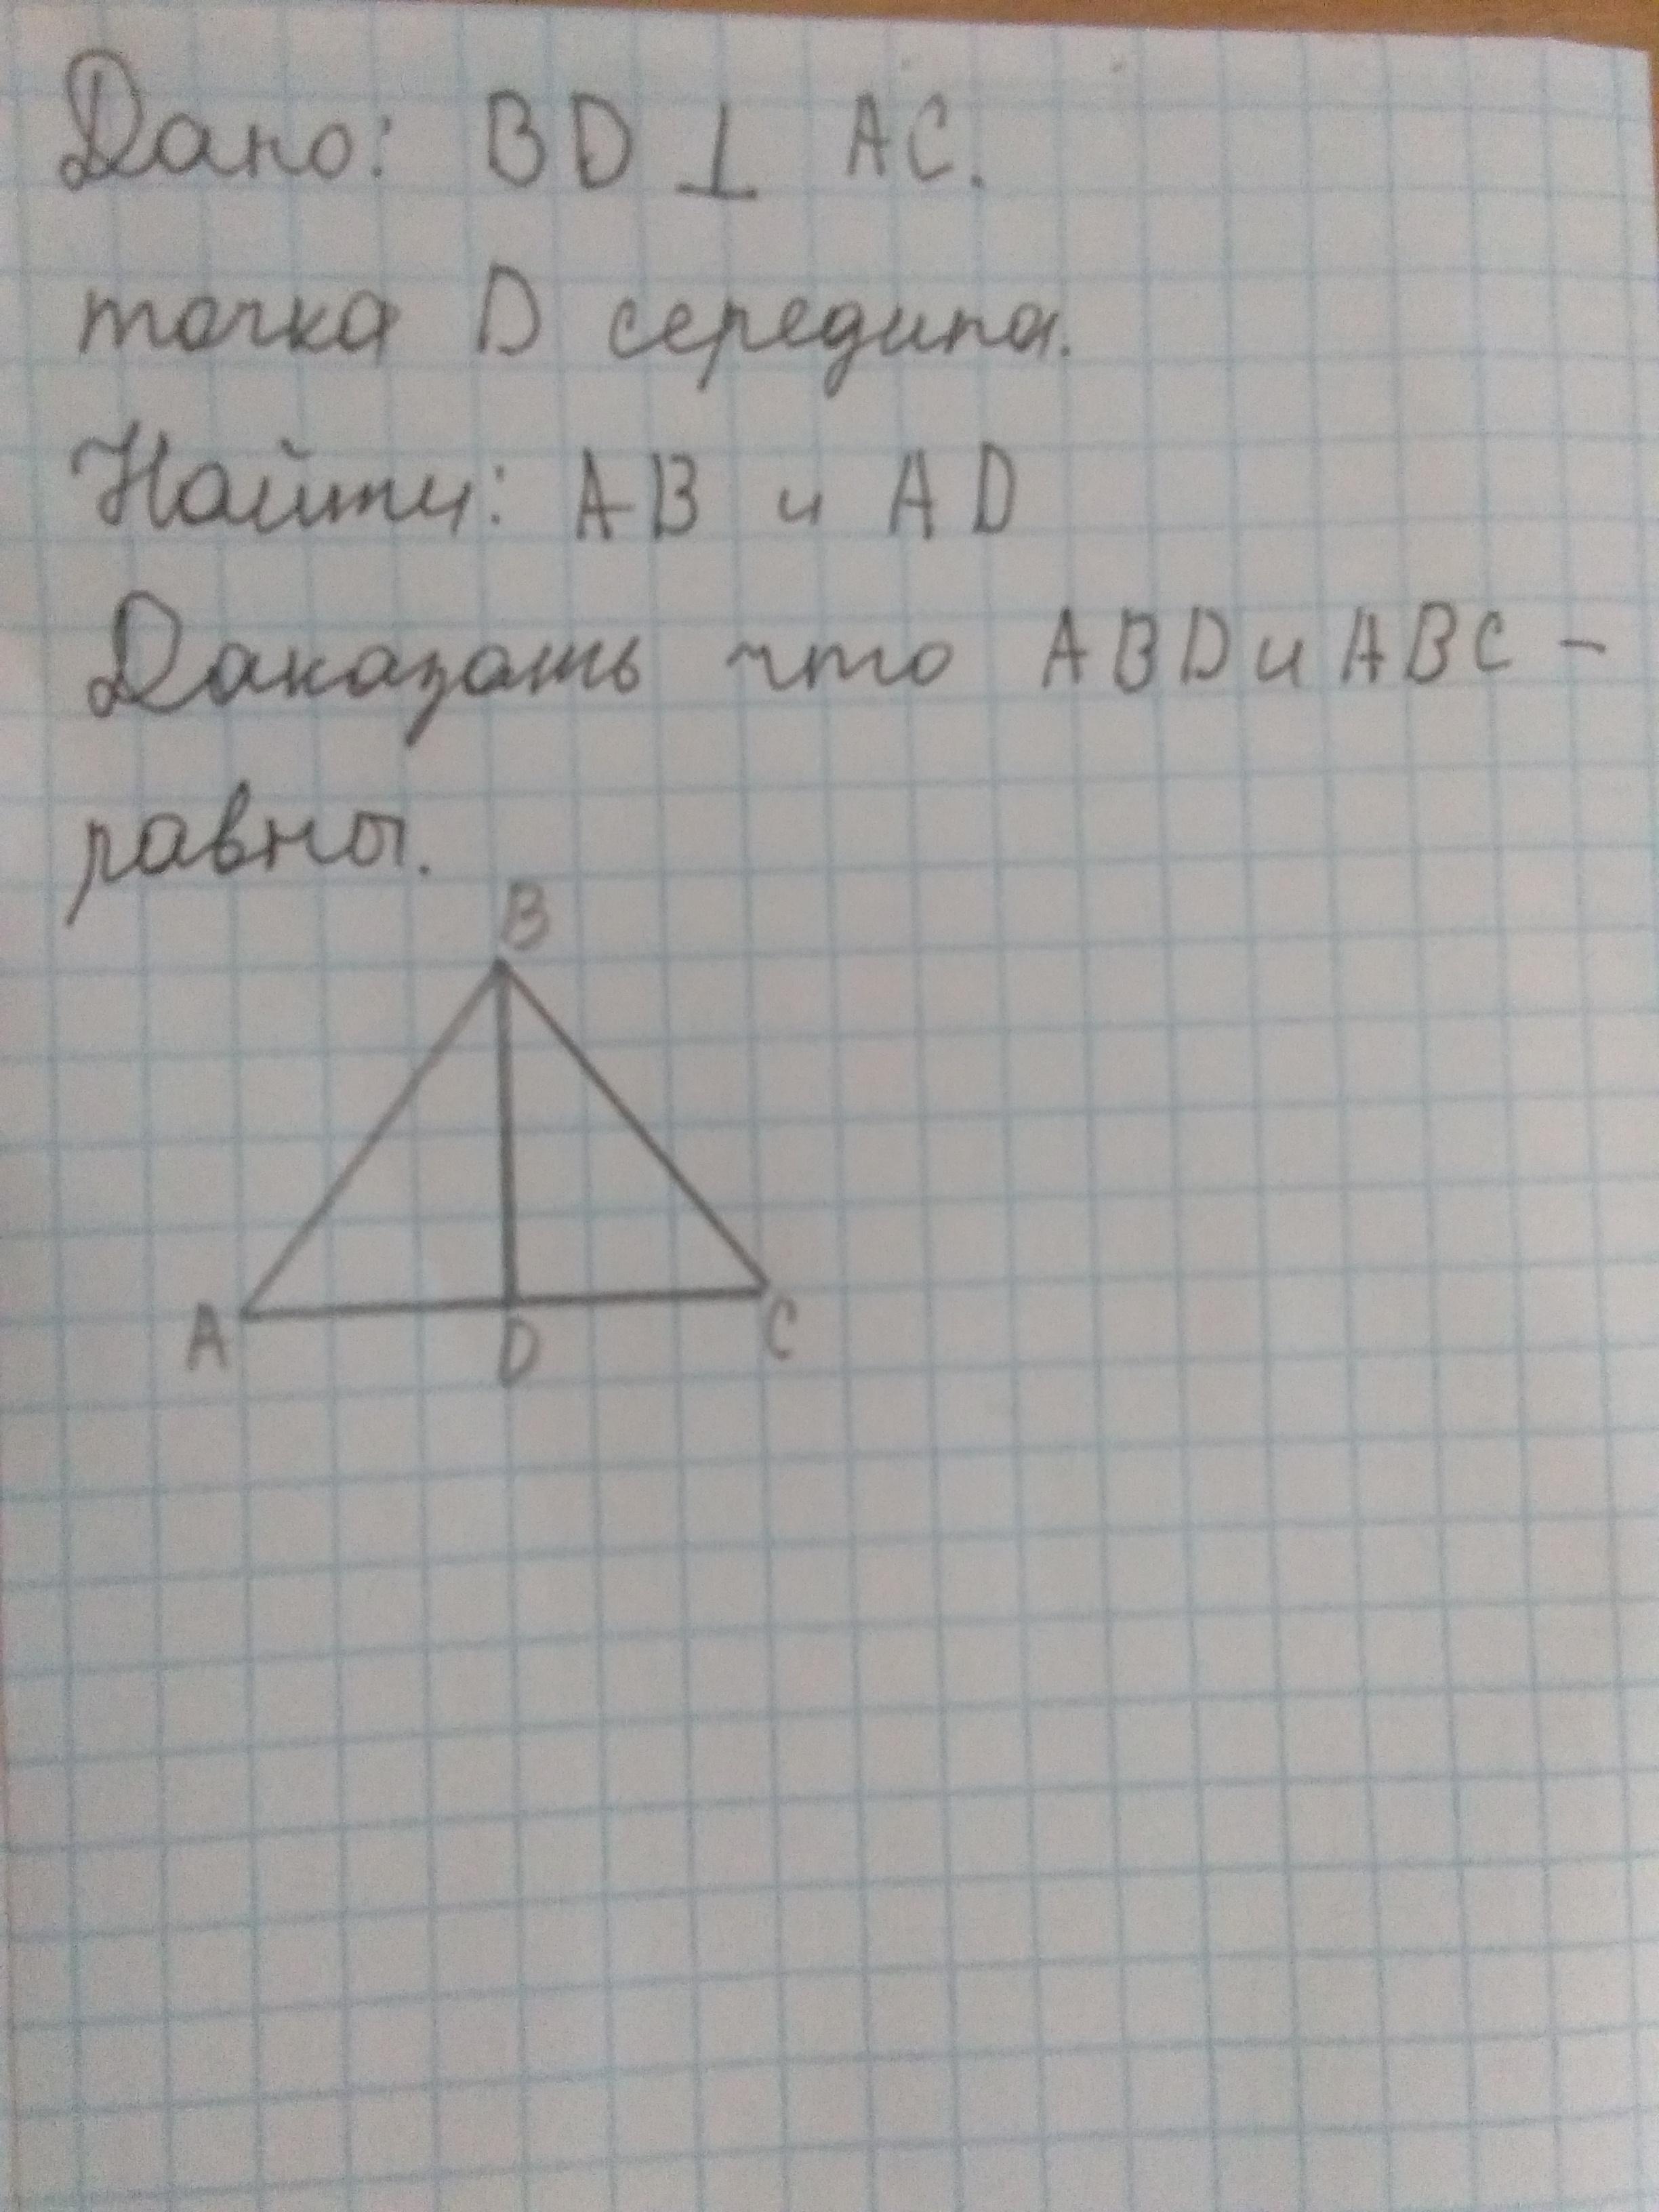 Дано: BD ⊥ AC.
точка D середина.
Найти: AB и AD
Даказать что ABD и ABC -
равны.
B
A D C